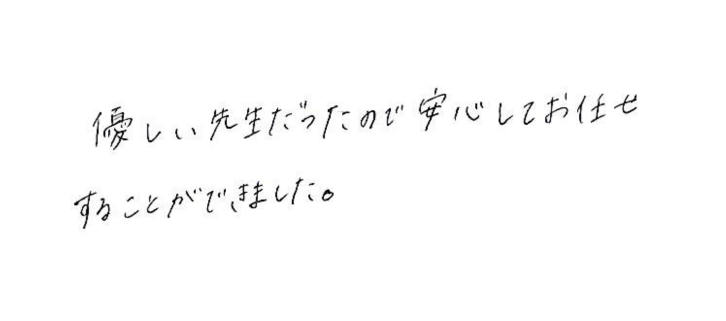 優しい先生だったので安心してお任せ
することができました。